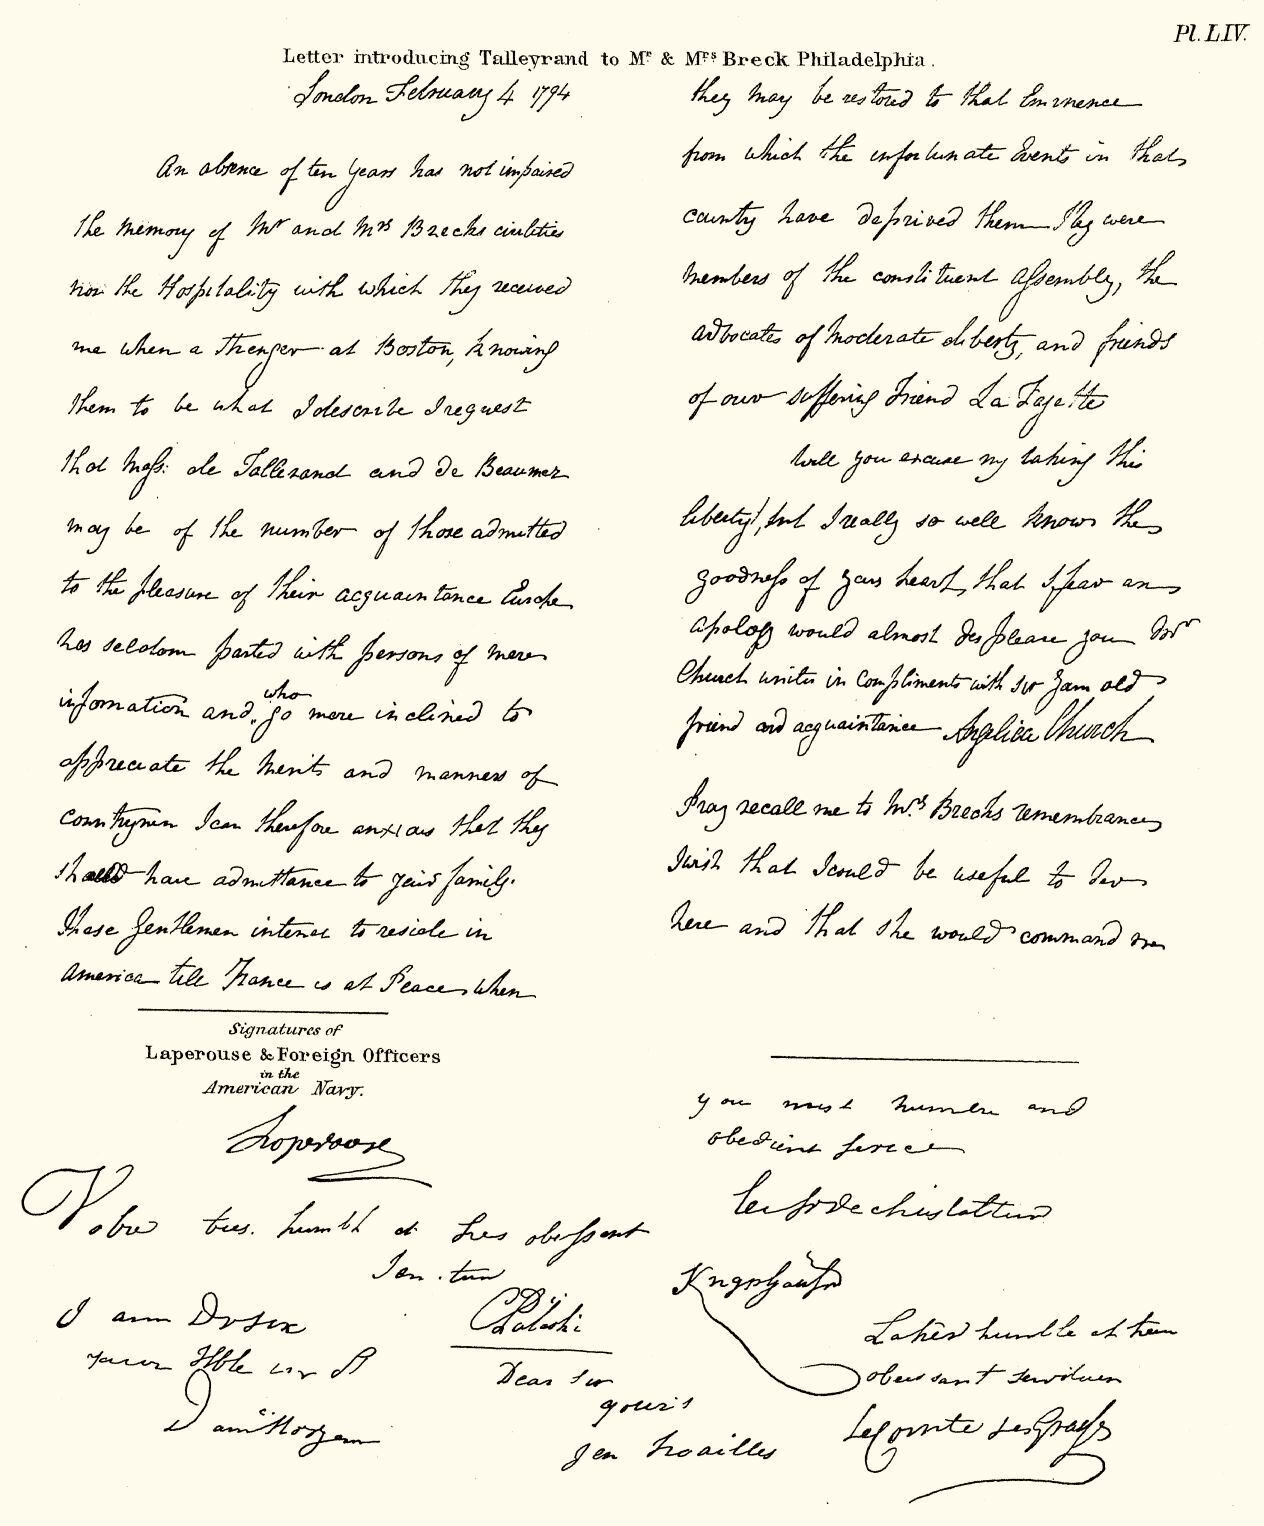 Pl. LIV.
Letter introducing Talleyrand to Mr & Mrs Breck Philadelphia.
London February 4 1794
An absence of ten years has not impaired
the memory of Mr and Mrs Brecks civilities
nor the Hospitality with which they received
me when a Strenger at Boston, knowing
them to be what I describe I request
that Mess: de Tallerand and de Beaumez
may be of the number of those admitted
to the pleasure of their acquaintance Europe
has seldom parted with persons of more
who
information and, so more inclined to
appreciate the Merits and manners of
countrymen I am therefore anxious that they
should have admittance to your family.
These Gentlemen intend to reside in
America till France is at Peace, when
they may be restored to that Eminence
from which the unfortunate Events in that
country have deprived them They were
Members of the constituent Assembly, the
advocates of Moderate liberty, and friends
of our suffering Friend La Fayette
Will you excuse my taking this
liberty!, but I really so well know the
goodness of your heart, that I fear an
apology would almost displease you Mr
Church unites in compliments with Sir Yam old
friend and acquaintance Angelica Church
Pray recall me to Mrs Brecks remembrance
I wish that I could be useful to her
here and that she would command me
Signatures of
Laperouse & Foreign Officers
in the
American Navy.
Laperouse
Votre tres. humble et tres obeissant
C Pulaski
I am Dr Sir
your Hble
Dan Morgan
Dear Sir
yours
Gen Noailles
you most humble and
obedient
Le Cher de Chastellux
Knyphausen
humble et
obeissant serviteur
Le Comte de Grasse